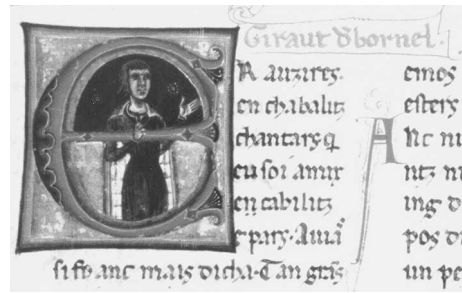 Giraut d'bornel.
ER auzires.
en chabalitz
chantars. q̄
eu soi amix
en cabilitz
e pars. Auiā
si fo anc mais dicha. Tan grās
emos
esters
Anc ni
ntz ni
ing d
pos d
un pe